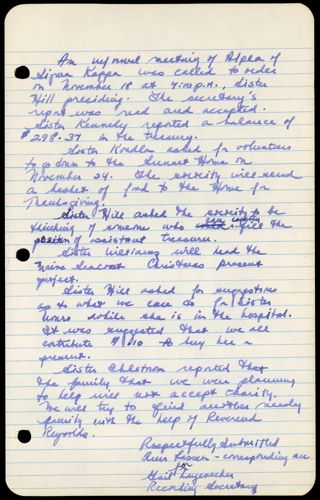 An informal meeting of Alpha of
Sigma Kappa was called to order
on November 18 at 4:10 p.m., Sister
Hill presiding. The secretary's
report was read and accepted.
Sister Kennedy reported a balance of
$298.37 in the treasury.
Sister Kordler asked for volunteers
to go down to the Sunset Home on
November 24. The sorority will send
a basket of food to the Home for
Thanksgiving.
Sister Hill asked the sorority to be
thinking of someone who can fill the
position of assistant treasurer.
Sister Williams will head the
Maine Seacoast Christmas present
project.
Sister Hill asked for suggestions
as to what we can do for Sister
while she is in the hospital.
It was suggested that we all
contribute $.10 to buy her a
present.
Sister Chelstrom reported that
the family that we were planning
to help will not accept charity.
We will try to find another needy
family with the help of Reverend
Reynolds.
Respectfully Submitted
Ann - corresponding sec
for
Gail
Recording Secretary